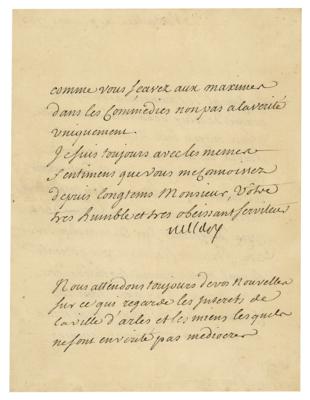 comme vous scavez aux maximes
dans les Commedies non pas a la verité
vniquement.
Je suis toujours avec les memes
sentimens que vous me connoissez
depuis longtems Monsieur, Votre
tres humble et tres obeissant serviteur
Nous attendons toujours de vos nouvelles
sur ce qui regarde les Interets de
la ville d'arles et les miens lesquels
ne sont en verité pas mediocres